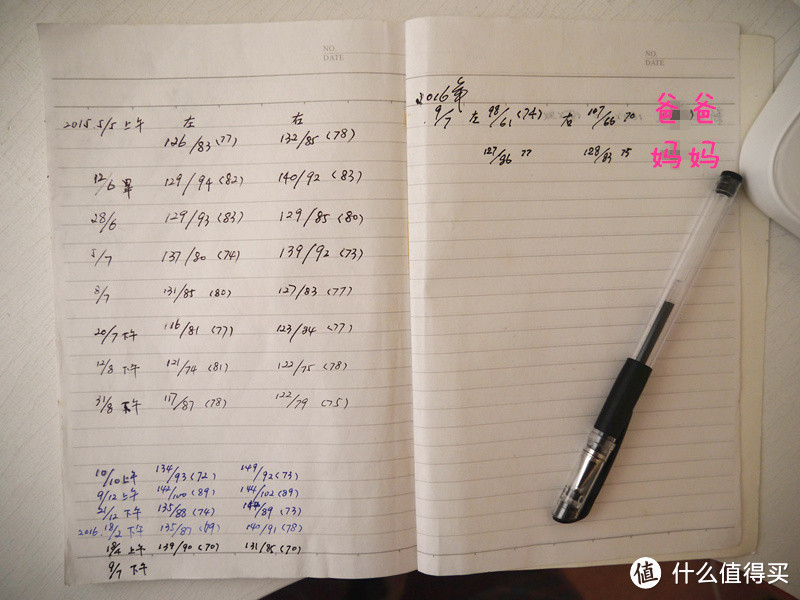 NO.
DATE
2015 5/5 上午 左 右
126/83 (77) 132/85 (78)
12/6 早 129/94 (82) 140/92 (83)
28/6 129/93 (83) 129/85 (80)
5/7 137/80 (74) 139/92 (73)
8/7 131/85 (80) 127/83 (77)
20/7 下午 116/81 (77) 123/84 (77)
12/8 下午 121/74 (81) 122/75 (78)
31/8 下午 117/87 (78) 122/79 (75)
10/10 上午 134/93 (72) 149/92 (73)
9/12 上午 142/100 (89) 144/102 (89)
21/12 下午 135/88 (74) /89 (73)
2016. 18/2 下午 135/87 140/91 (78)
上午 139/90 (70) 131/85 (70)
9/7 下午
NO.
DATE
2016年
9/7 左 98/61 (74) 右 107/66 70 爸爸
127/86 77 128/83 75 妈妈
值 什么值得买